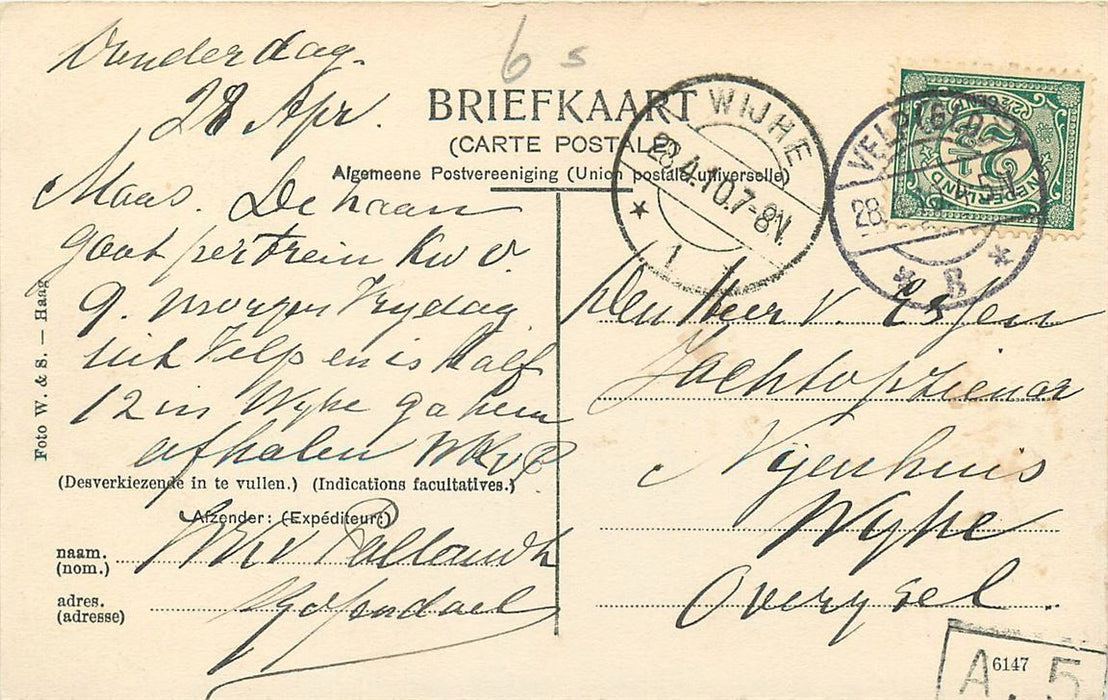 Donderdag
28 Apr.
Maas. De haan
gaat per trein Kw v
9. morgen Vrydag
uit Velp en is half
12 in Wyhe ga hem
afhalen WKvP
6 s
BRIEFKAART
(CARTE POSTALE)
Algemeene Postvereeniging (Union postale universelle)
Foto W. & S. — Haag
(Desverkiezende in te vullen.) (Indications facultatives.)
Afzender: (Expéditeur:)
naam. WK v Pallandt
(nom.)
adres.
(adresse)
WIJHE
28.4.10.7-8N.
1
VELP (GLD)
28.
B
NEDERLAND
2½
Den Heer v.
Jachtopziener
Nyenhuis
Wyhe
Overysel.
6147
A. 5